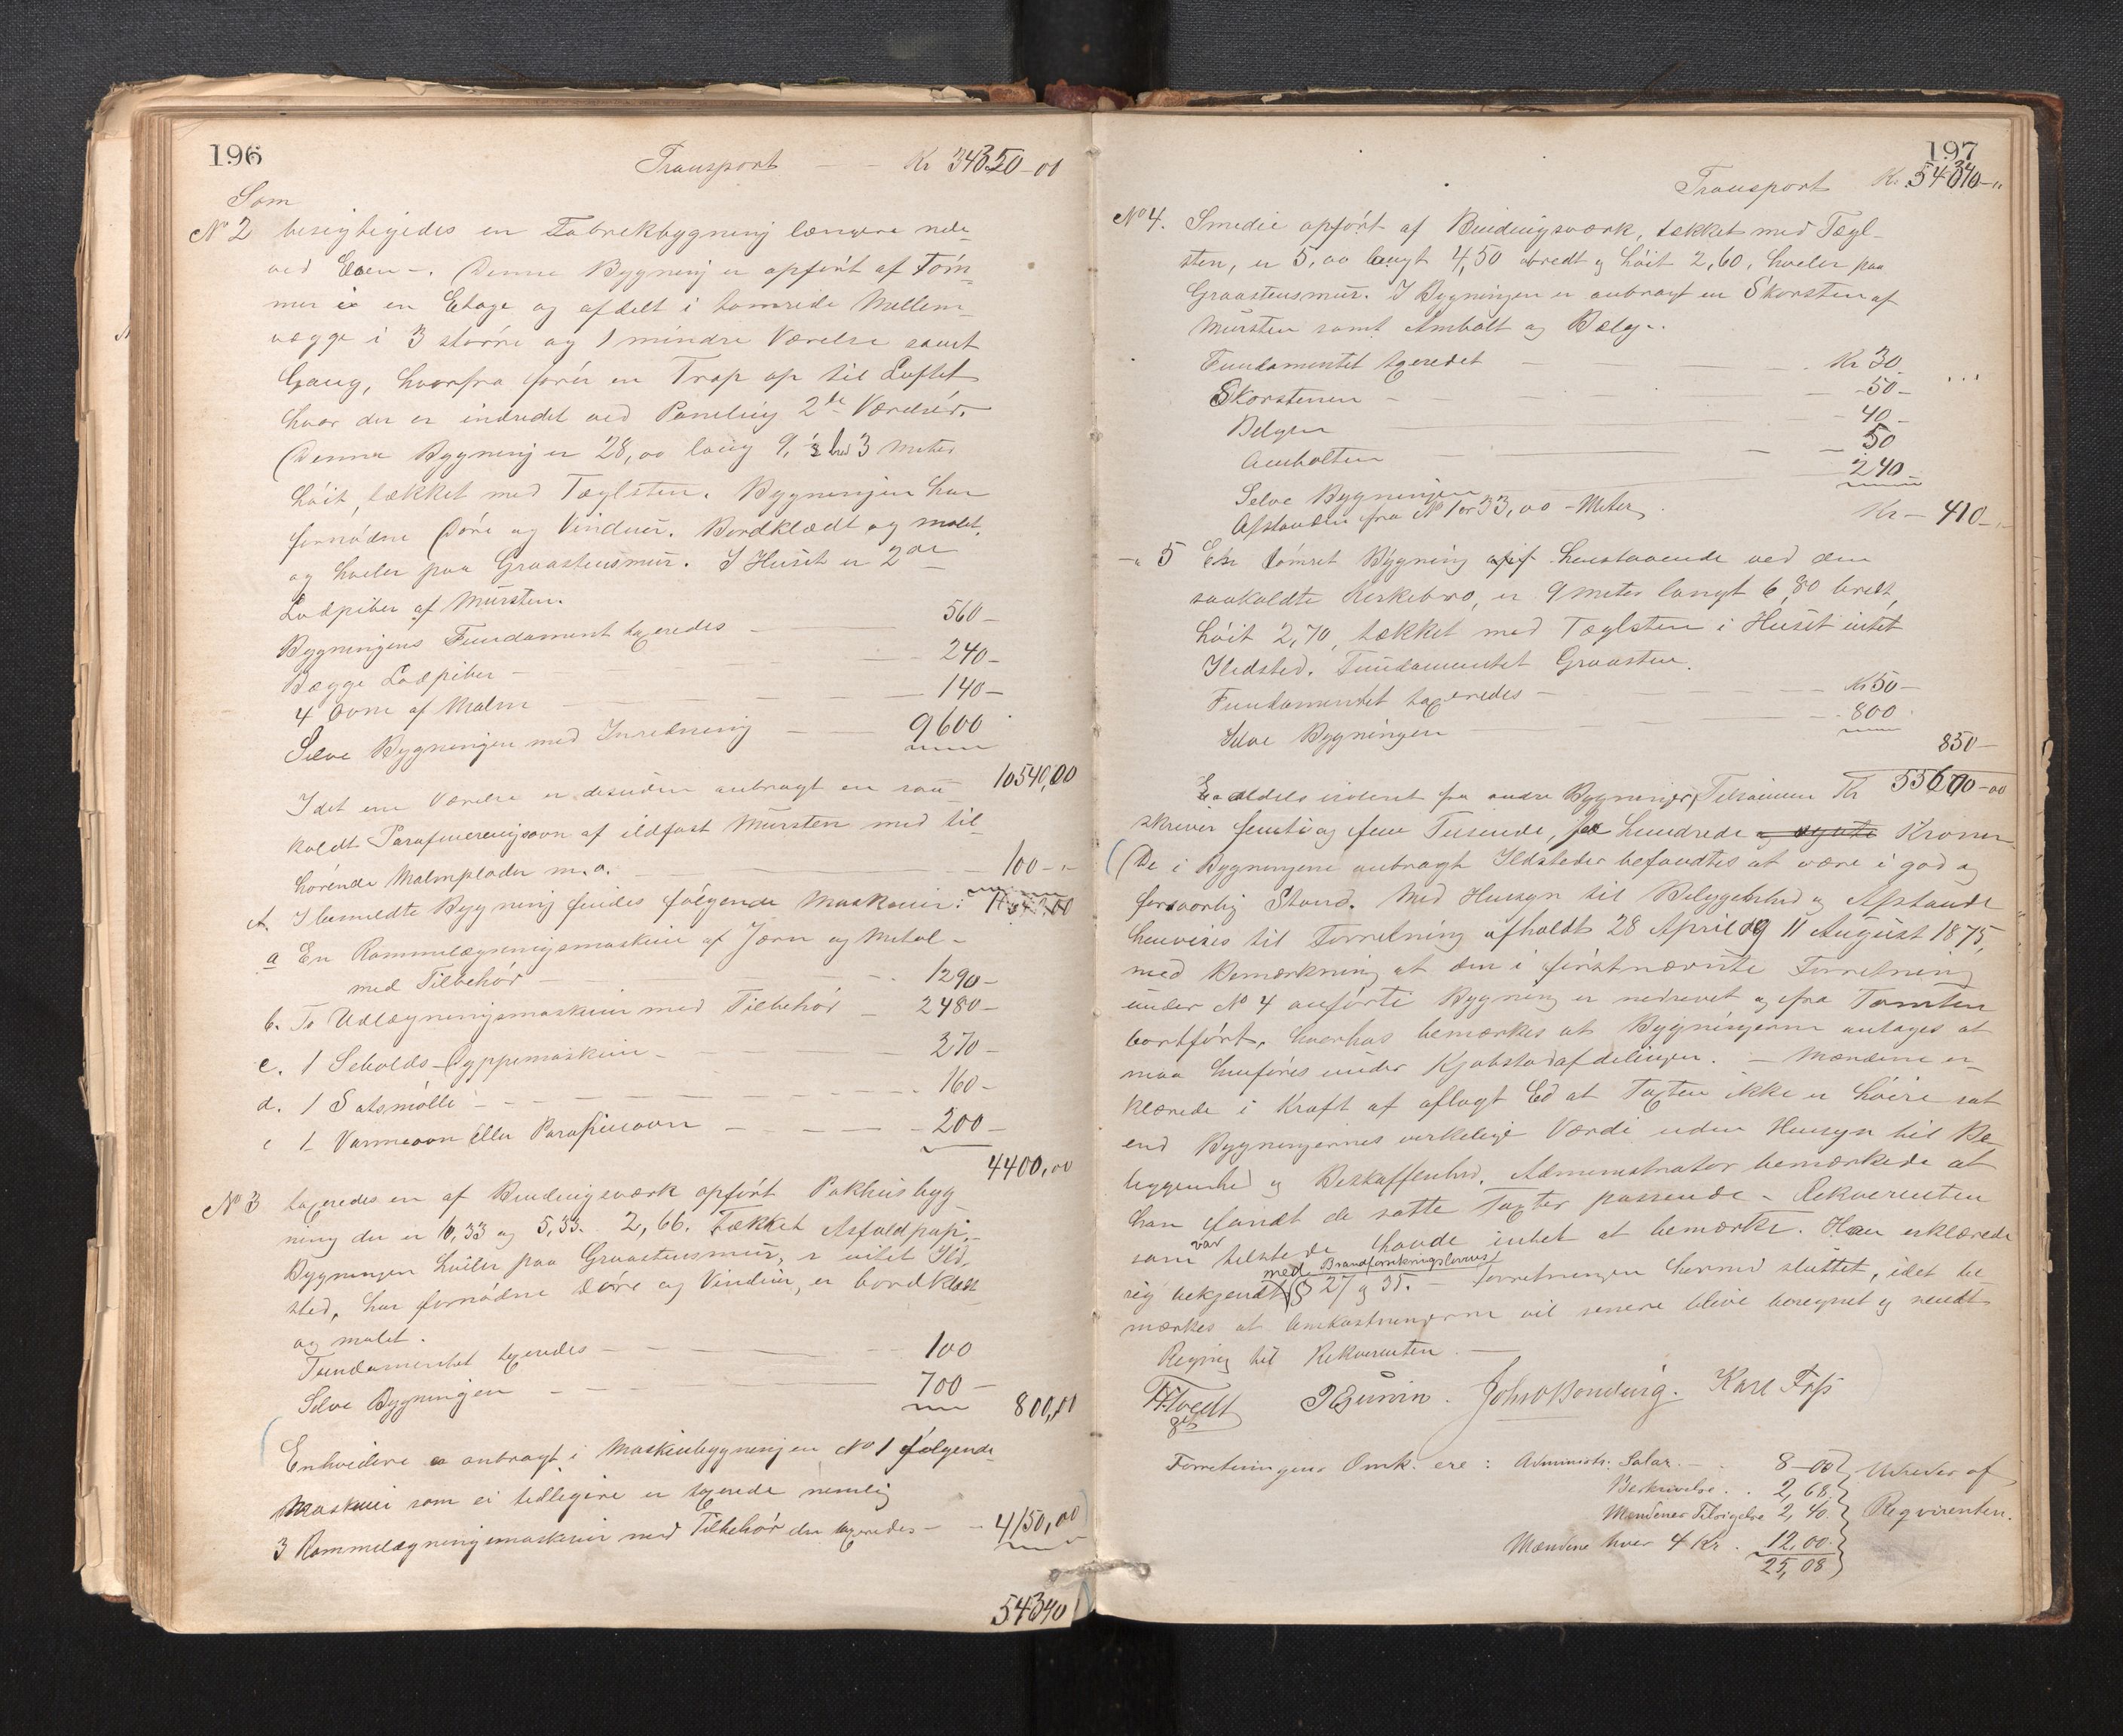 196
Transport — Kr 34350-00
Som
No 2 besigtigedes en Fabrekbygning længere nede
ved Elven -. Denne Bygning er opført af Tøm-
mer i en Etage og afdelt i tømrede Mellem-
vægge i 3 større og 1 mindre Værelse samt
Gang, hvorfra fører en Trap op til Loftet
hvor der er indredet ved Paneling 2de Værelser.
Denne Bygning er 28,00 lang 9, bred 3 Meter
høit, tækket med Tæglsten. Bygningen har
fornødne Døre og Vinduer. Bordklædt og malet
og hviler paa Graastensmur. I Huset er 2de
Ladpiber af Mursten.
Bygningens Fundament taxeredes — 560 -
Begge Ladpiber — 240 -
4 Ovne af Malm — 140 -
Selve Bygningen med Inredning — 9600
10540,00
I det ene Værelse er desuden anbragt en saa-
kaldt Parafineringsovn af ildfast Mursten med til-
hørende Malmplader m.v. — 100 - "
A. I bemeldte Bygning findes følgende Maskiner:
a En Rammelægningsmaskine af Jern og Metal -
med Tilbehør — 1290 -
b. To Udlægningsmaskiner med Tilbehør — 2480 -
c. 1 Sebolds Dyppemaskine — 270 -
d. 1 Satsmølle — 160 -
e 1 Varmeovn eller Parafinovn — 200 -
4400,00
No 3 taxeredes en af Bindingsværk opført Pakhusbyg-
ning der er 6,33 og 5,33. 2,66. Tækket Asfaldpapi.-
Bygningen hviler paa Graastensmur, er uden Ild-
sted, har fornødne Døre og Vinduer, er bordklædt
og malet.
Fundamentet taxeredes — 100
Selve Bygningen — 700 -
800,00
Enhvidere er anbragt i Maskinbygningen No 1 følgende
Maskiner som ei tidligere er taxerede nemlig
3 Rammelægningsmaskiner med Tilbehør der taxeredes — 4150,00
54340
197
Transport Kr. 54340 - "
No 4. Smedie opført af Bindingsværk, tækket med Tægl-
sten, er 5,00 langt 4,50 bredt og høit 2,60, hviler paa
Graastensmur. I Bygningen er anbragt en Skorsten af
Mursten samt Ambolt og Bælg -.
Fundamentet taxeredet — Kr 30
Skorstenen — 50 -
Belgen — 40 -
Ambolten — 50
Selve Bygningen — 240 -
Afstanden fra No 1 er 33,00 - Meter. Kr - 410 -
- " 5 En tømret Bygning henstaaende ved den
saakaldte Kirkebro, er 9 Meter langt 6,80 bredt,
høit 2,70, tækket med Tæglsten i Huset intet
Ildsted. Fundamentet Graasten.
Fundamentet taxeredes — Kr 50 -
Selve Bygningen — 800
850 -
aldels isoleret fra andre Bygninger, Tilsammen Kr 55600-00
skriver femti og fem Tusinde, sex hundrede Kroner
De i Bygningerne anbragt Ildsteder befandtes at være i god og
forsvarlig Stand. Med Hensyn til Beliggenhed og Afstande
henvises til Forretning afholdt 28 April og 11 August 1875,
med Bemærkning at den i førstnævnte Forretning
under No 4 anførte Bygning er nedrevet og fra Tomten
bortført, hvorhos bemærkes at Bygningerne antages at
maa henføres under Kjøbstadafdelingen. — Mændene er-
klærede i Kraft af aflagt Ed at Taxten ikke er høire sat
end Bygningernes virkelige Værdi uden Hensyn til Be-
liggenhed og Beskaffenhed. Administrator bemærkede at
han fandt de satte Taxter passende - Rekvirenten
som var tilstede havde intet at bemærke. Han erklærede
sig bekjendt med Brandforsikringslovens § 27 og 35. — Forretningen hermed sluttet, idet be-
mærkes at Omkostningerne vil senere blive beregnet og sendt
Regning til Rekvirenten. —
John O Bonding. Karl Friis
Forretningens Omk. ere: Administr. Salar. — 8-00
Beskrivelse . . 2,68.
Mændenes Tilsigelse 2,40.
Mændene hver 4 Kr. 12,00.
25,08
Udredes af
Reqvirenten.